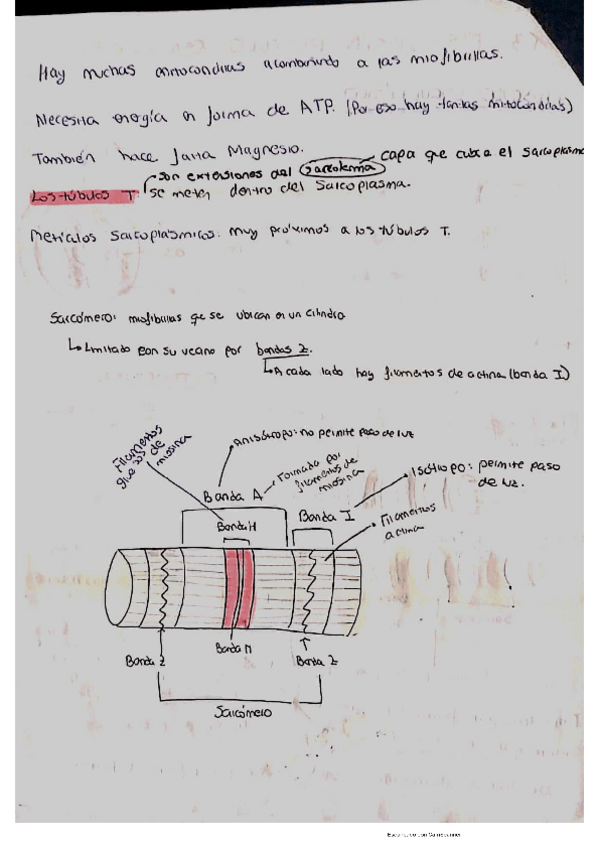 Hay muchas mitocondrias alimentando a las miofibrillas.
Necesita energía en forma de ATP. (Por eso hay tantas mitocondrias)
También hace falta Magnesio.
son extensiones del sarcolema
capa que cubre el sarcoplasma
Los túbulos T:
se meten dentro del sarcoplasma.
Retículos sarcoplásmicos: muy próximos a los túbulos T.
Sarcómero: miofibrillas que se ubican en un cilindro
Limitado con su vecino por bandas Z.
A cada lado hay filamentos de actina (banda I)
Filamentos gruesos de miosina
Anisótropo: no permite paso de luz
Banda A
Formada por filamentos de miosina
Isótropo: permite paso de luz.
Banda H
Banda I
Filamentos actina
Banda Z
Banda M
Banda Z
Sarcómero
Escaneado con CamScanner